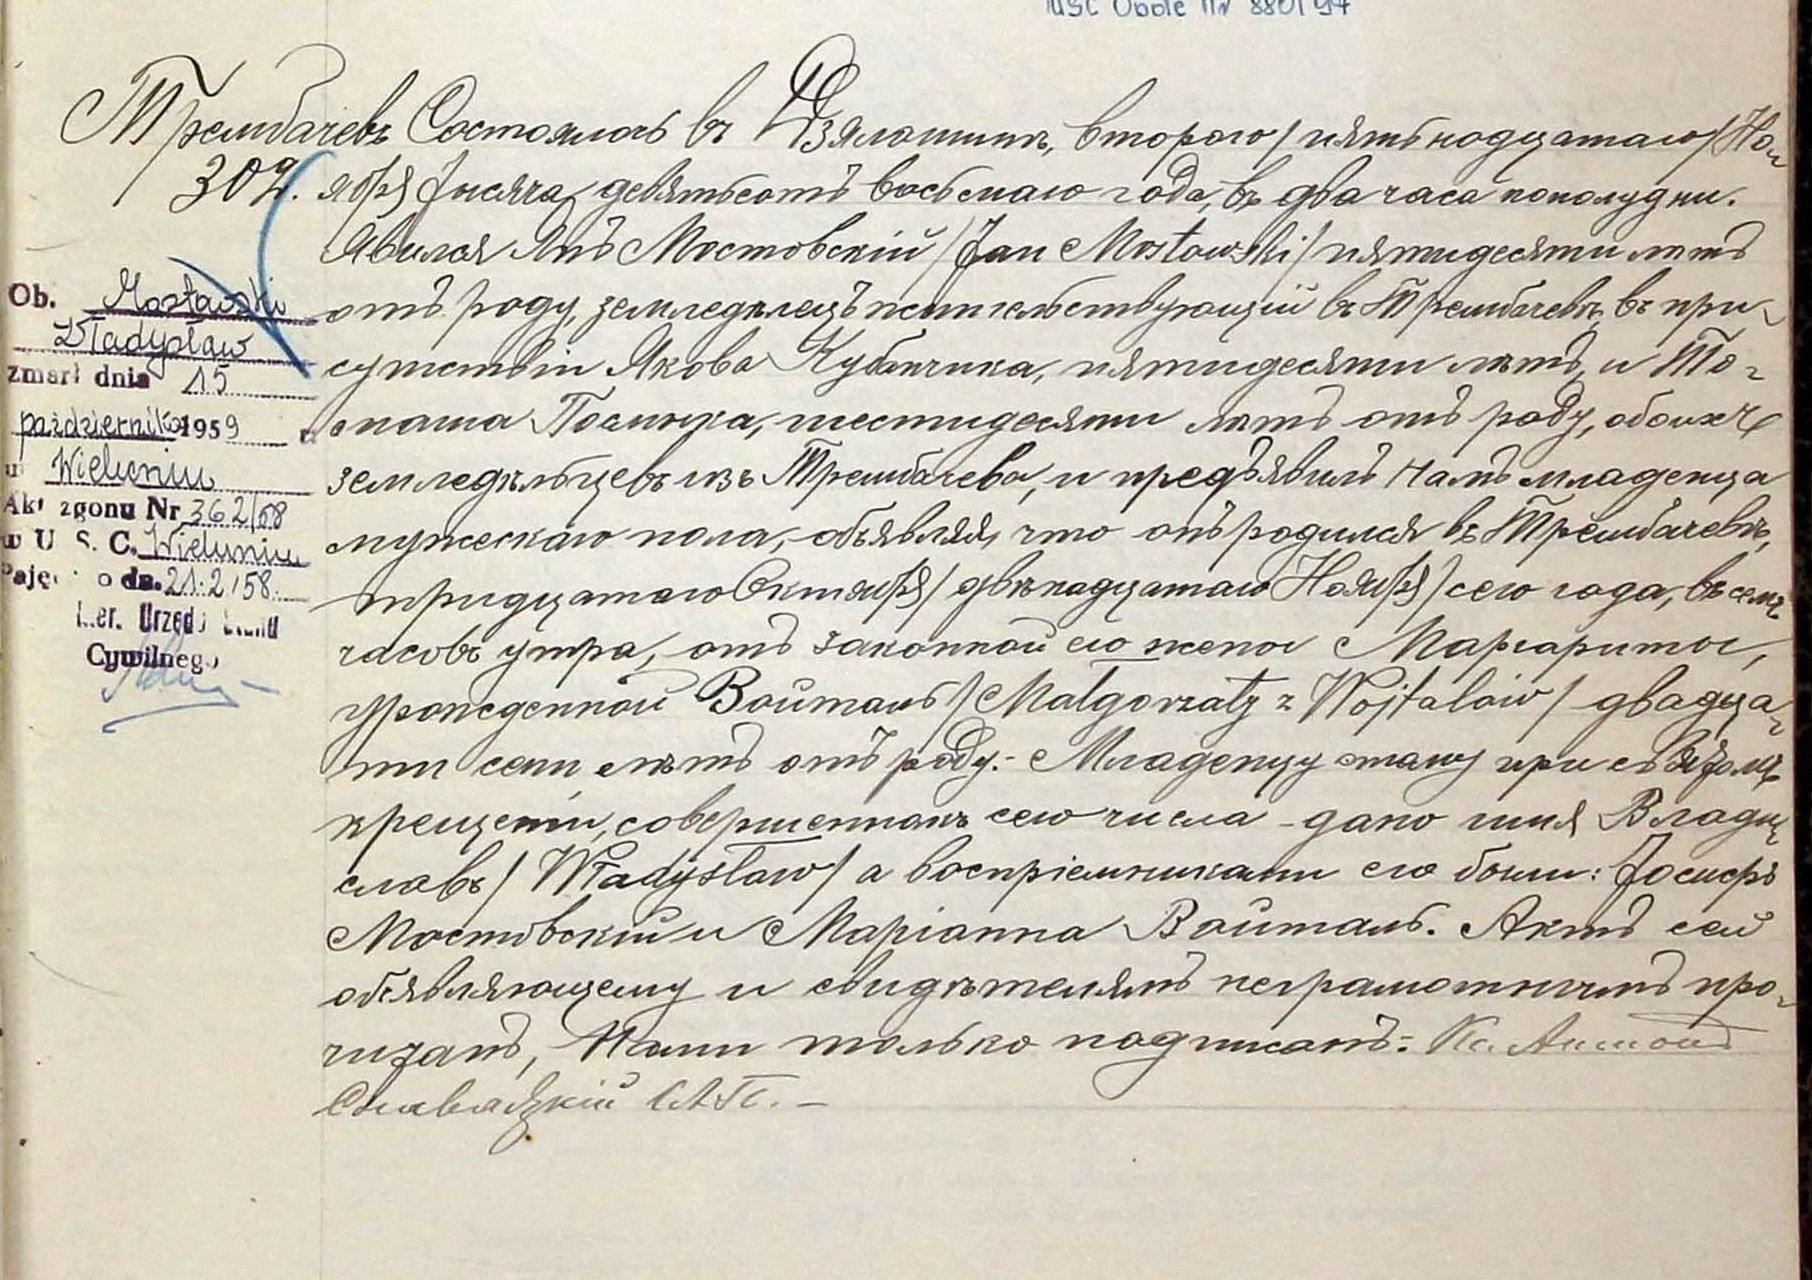 USC Opole nr 880/97
Трембачевъ
302.
Состоялось въ Дзялошинѣ, второго / пятьнадцатаго / Но-
ября тысяча девятьсотъ восьмаго года, въ два часа пополудни.
Явился Янъ Мостовскій / Jan Mostowski / пятидесяти лѣтъ
отъ роду, земледѣлецъ жительствующій въ Трембачевѣ, въ при-
сутствіи Якова Кубанчика, пятидесяти лѣтъ, и То-
маша шестидесяти лѣтъ отъ роду, обоихъ
земледѣльцевъ изъ Трембачева, и предъявилъ намъ младенца
мужескаго пола, объявляя, что онъ родился въ Трембачевѣ,
тридцатаго Октября / двѣнадцатаго Ноября / сего года, въ семь
часовъ утра, отъ законной его жены Маргариты,
урожденной Войталь / Małgorzaty z Wojtalów / двадца-
ти семи лѣтъ отъ роду. - Младенцу этому при святомъ
крещеніи, совершенномъ сего числа - дано имя Влади-
славъ / Władysław / а воспріемниками его были: Іосифъ
Мостовскій и Маріанна Войталь. Актъ сей
объявляющему и свидѣтелямъ неграмотнымъ про-
читанъ, Нами только подписанъ: Кс. Антонъ
С.А.П. -
Ob. Mostowski
Władysław
zmarł dnia 15
października 1959
w Wieluniu
Akt zgonu Nr 362/58
w U. S. C. Wieluniu
dn. 21.2.58.
Cywilnego